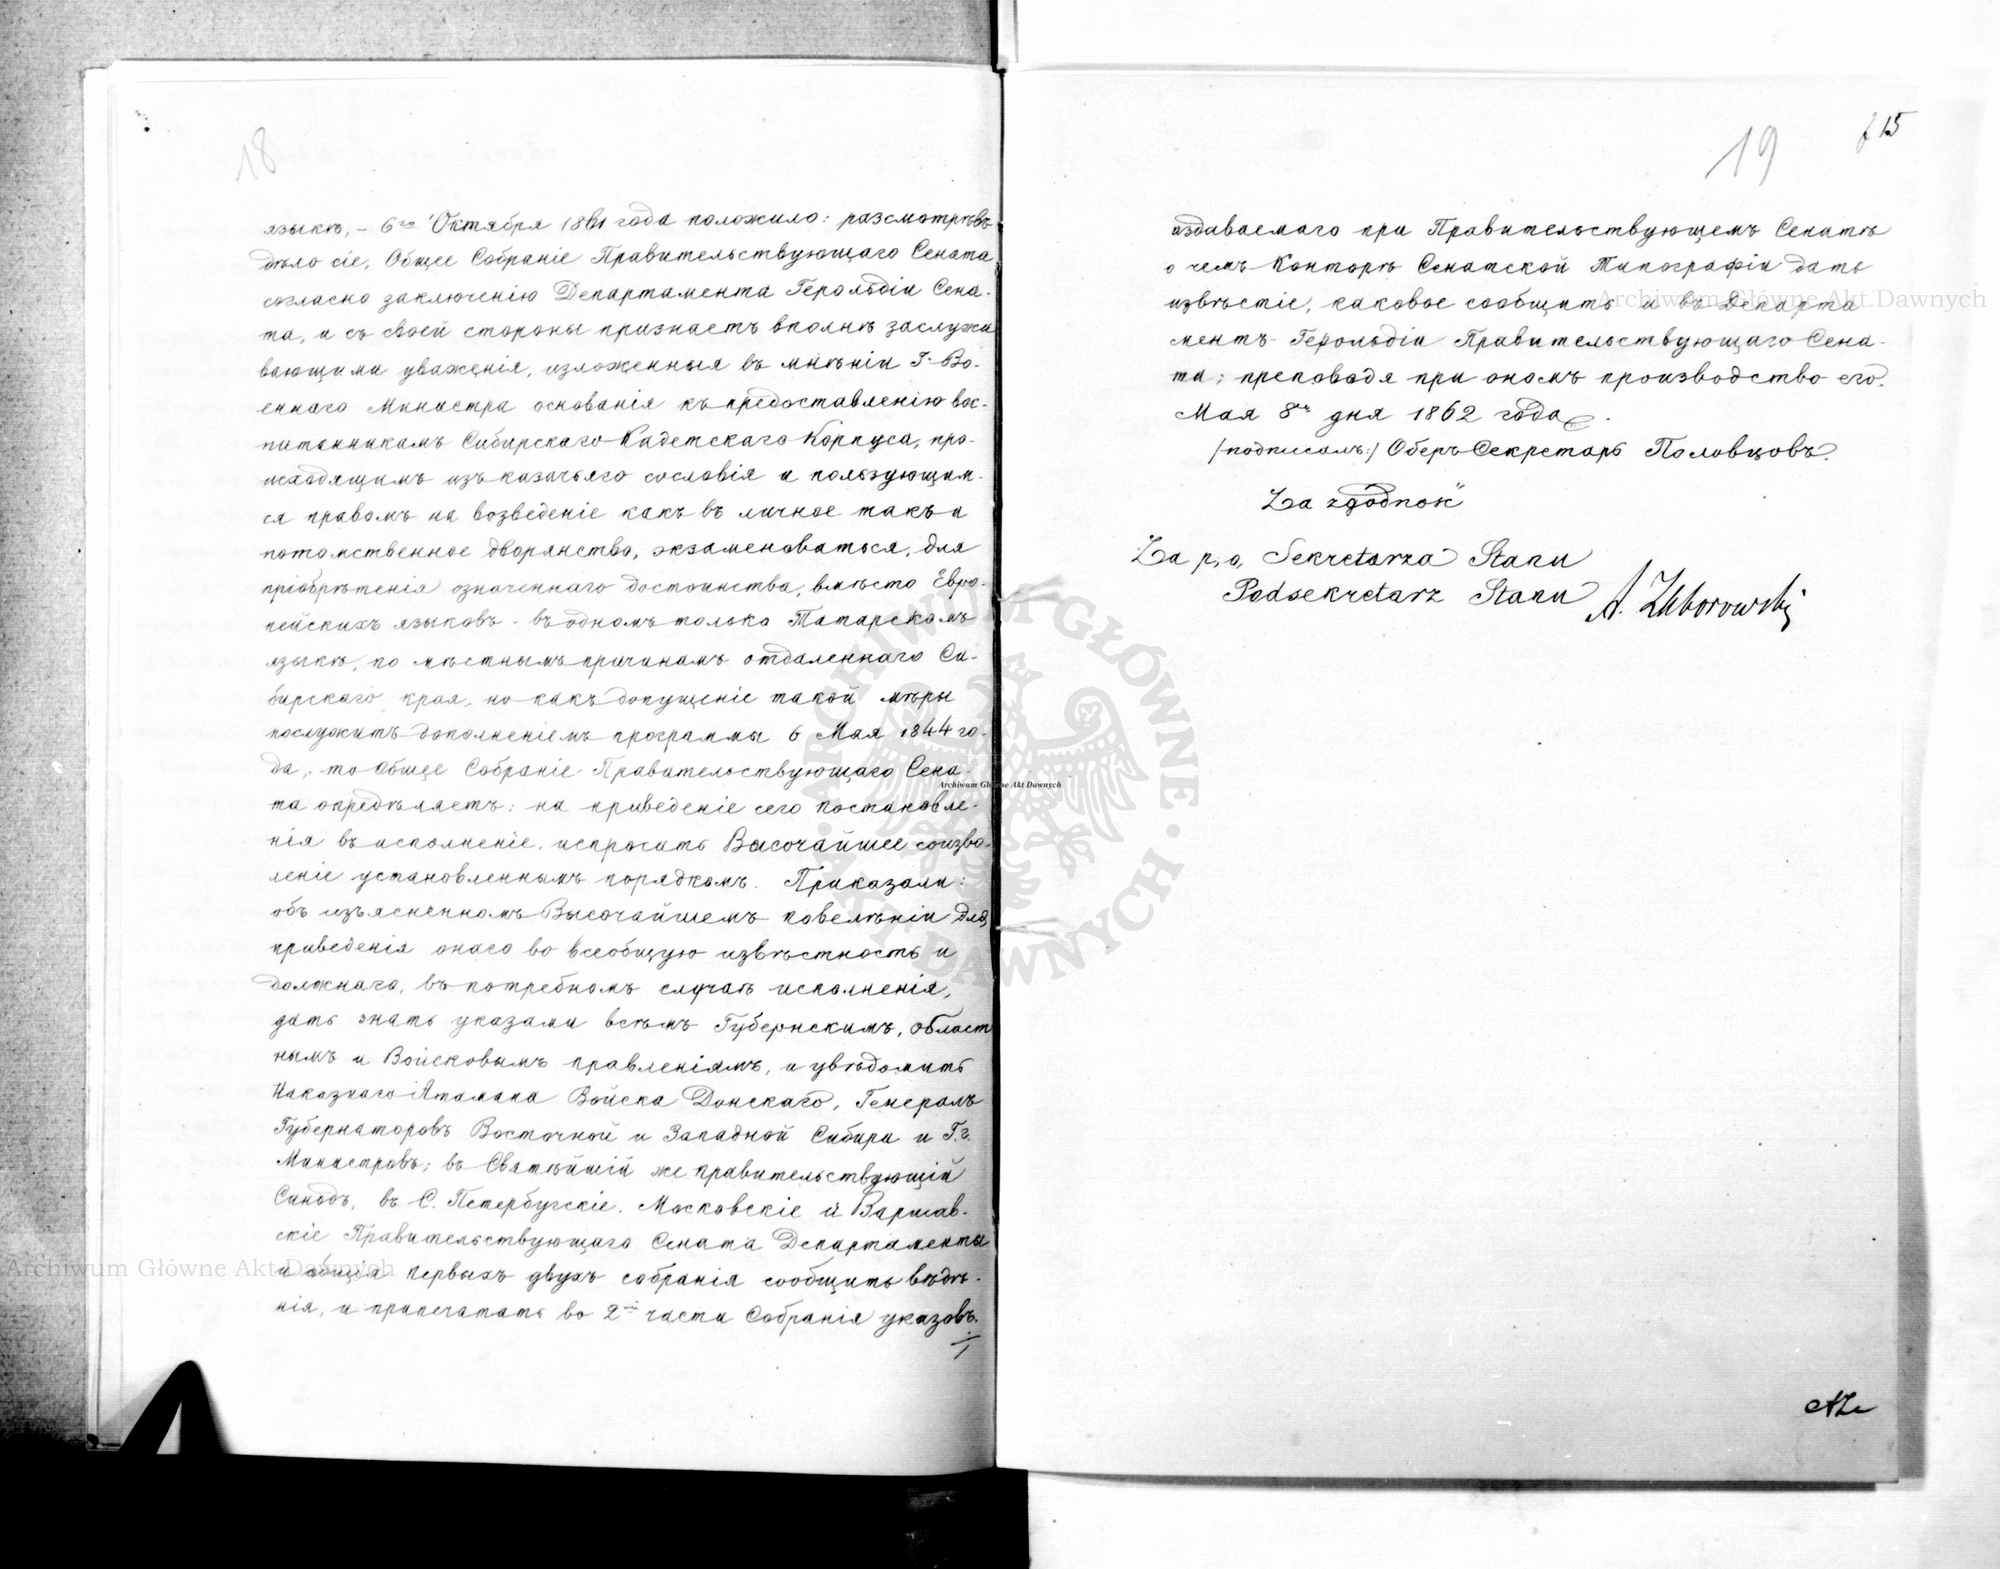 18
языкѣ, – 6го Октября 1861 года положило: разсмотрѣвъ
дѣло сіе, Общее Собраніе Правительствующаго Сената
согласно заключенію Департамента Герольдіи Сена-
та, и съ своей стороны признаетъ вполнѣ заслужи
вающими уваженія, изложенныя въ мнѣніи Г. Во-
еннаго Министра основанія къ предоставленію вос-
питанникамъ Сибирскаго Кадетскаго Корпуса, про-
исходящимъ изъ казачьяго сословія и пользующим-
ся правомъ на возведеніе какъ въ личное такъ и
потомственное дворянство, экзаменоваться, для
пріобрѣтенія означеннаго достоинства, вмѣсто Евро-
пейскихъ языковъ – въ одномъ только Татарскомъ
языкѣ, по мѣстнымъ причинамъ отдаленнаго Си-
бирскаго края, но какъ допущеніе такой мѣры
послужитъ дополненіемъ программы 6 Мая 1844 го-
да, то Общее Собраніе Правительствующаго Сена-
та опредѣляетъ: на приведеніе сего постановле-
нія въ исполненіе, испросить Высочайшее соизво-
леніе установленнымъ порядкомъ. Приказали:
объ изъясненномъ Высочайшемъ повелѣніи для
приведенія онаго во всеобщую извѣстность и
должнаго, въ потребномъ случаѣ исполненія,
дать знать указами всѣмъ Губернскимъ, област
нымъ и Войсковымъ правленіямъ, и увѣдомить
Наказнаго Атамана Войска Донскаго, Генералъ
Губернаторовъ Восточной и Западной Сибири и Г.г.
Министровъ; въ Святѣйшій же правительствующій
Синодъ, въ С. Петербугскіе, Московскіе и Варшав-
скіе Правительствующаго Сената Департаменты
и общія первыхъ двухъ собранія сообщить вѣдѣ-
нія, и припечатать во 2й части Собранія указовъ.
19
15
издаваемаго при Правительствующемъ Сенатѣ
о чемъ Конторѣ Сенатской Типографіи дать
извѣстіе, каковое сообщить и въ Департа
ментъ Герольдіи Правительствующаго Сена-
та; преповодя при ономъ производство его.
Мая 8го дня 1862 года.
/подписалъ:/ Оберъ Секретарь Половцовъ.
Za zgodność
Za p, o, Sekretarza Stanu
Podsekretarz Stanu A. Zaborowski
AZ
Archiwum Główne Akt Dawnych
Archiwum Główne Akt Dawnych
Archiwum Główne Akt Dawnych
ARCHIWUM GŁÓWNE AKT DAWNYCH